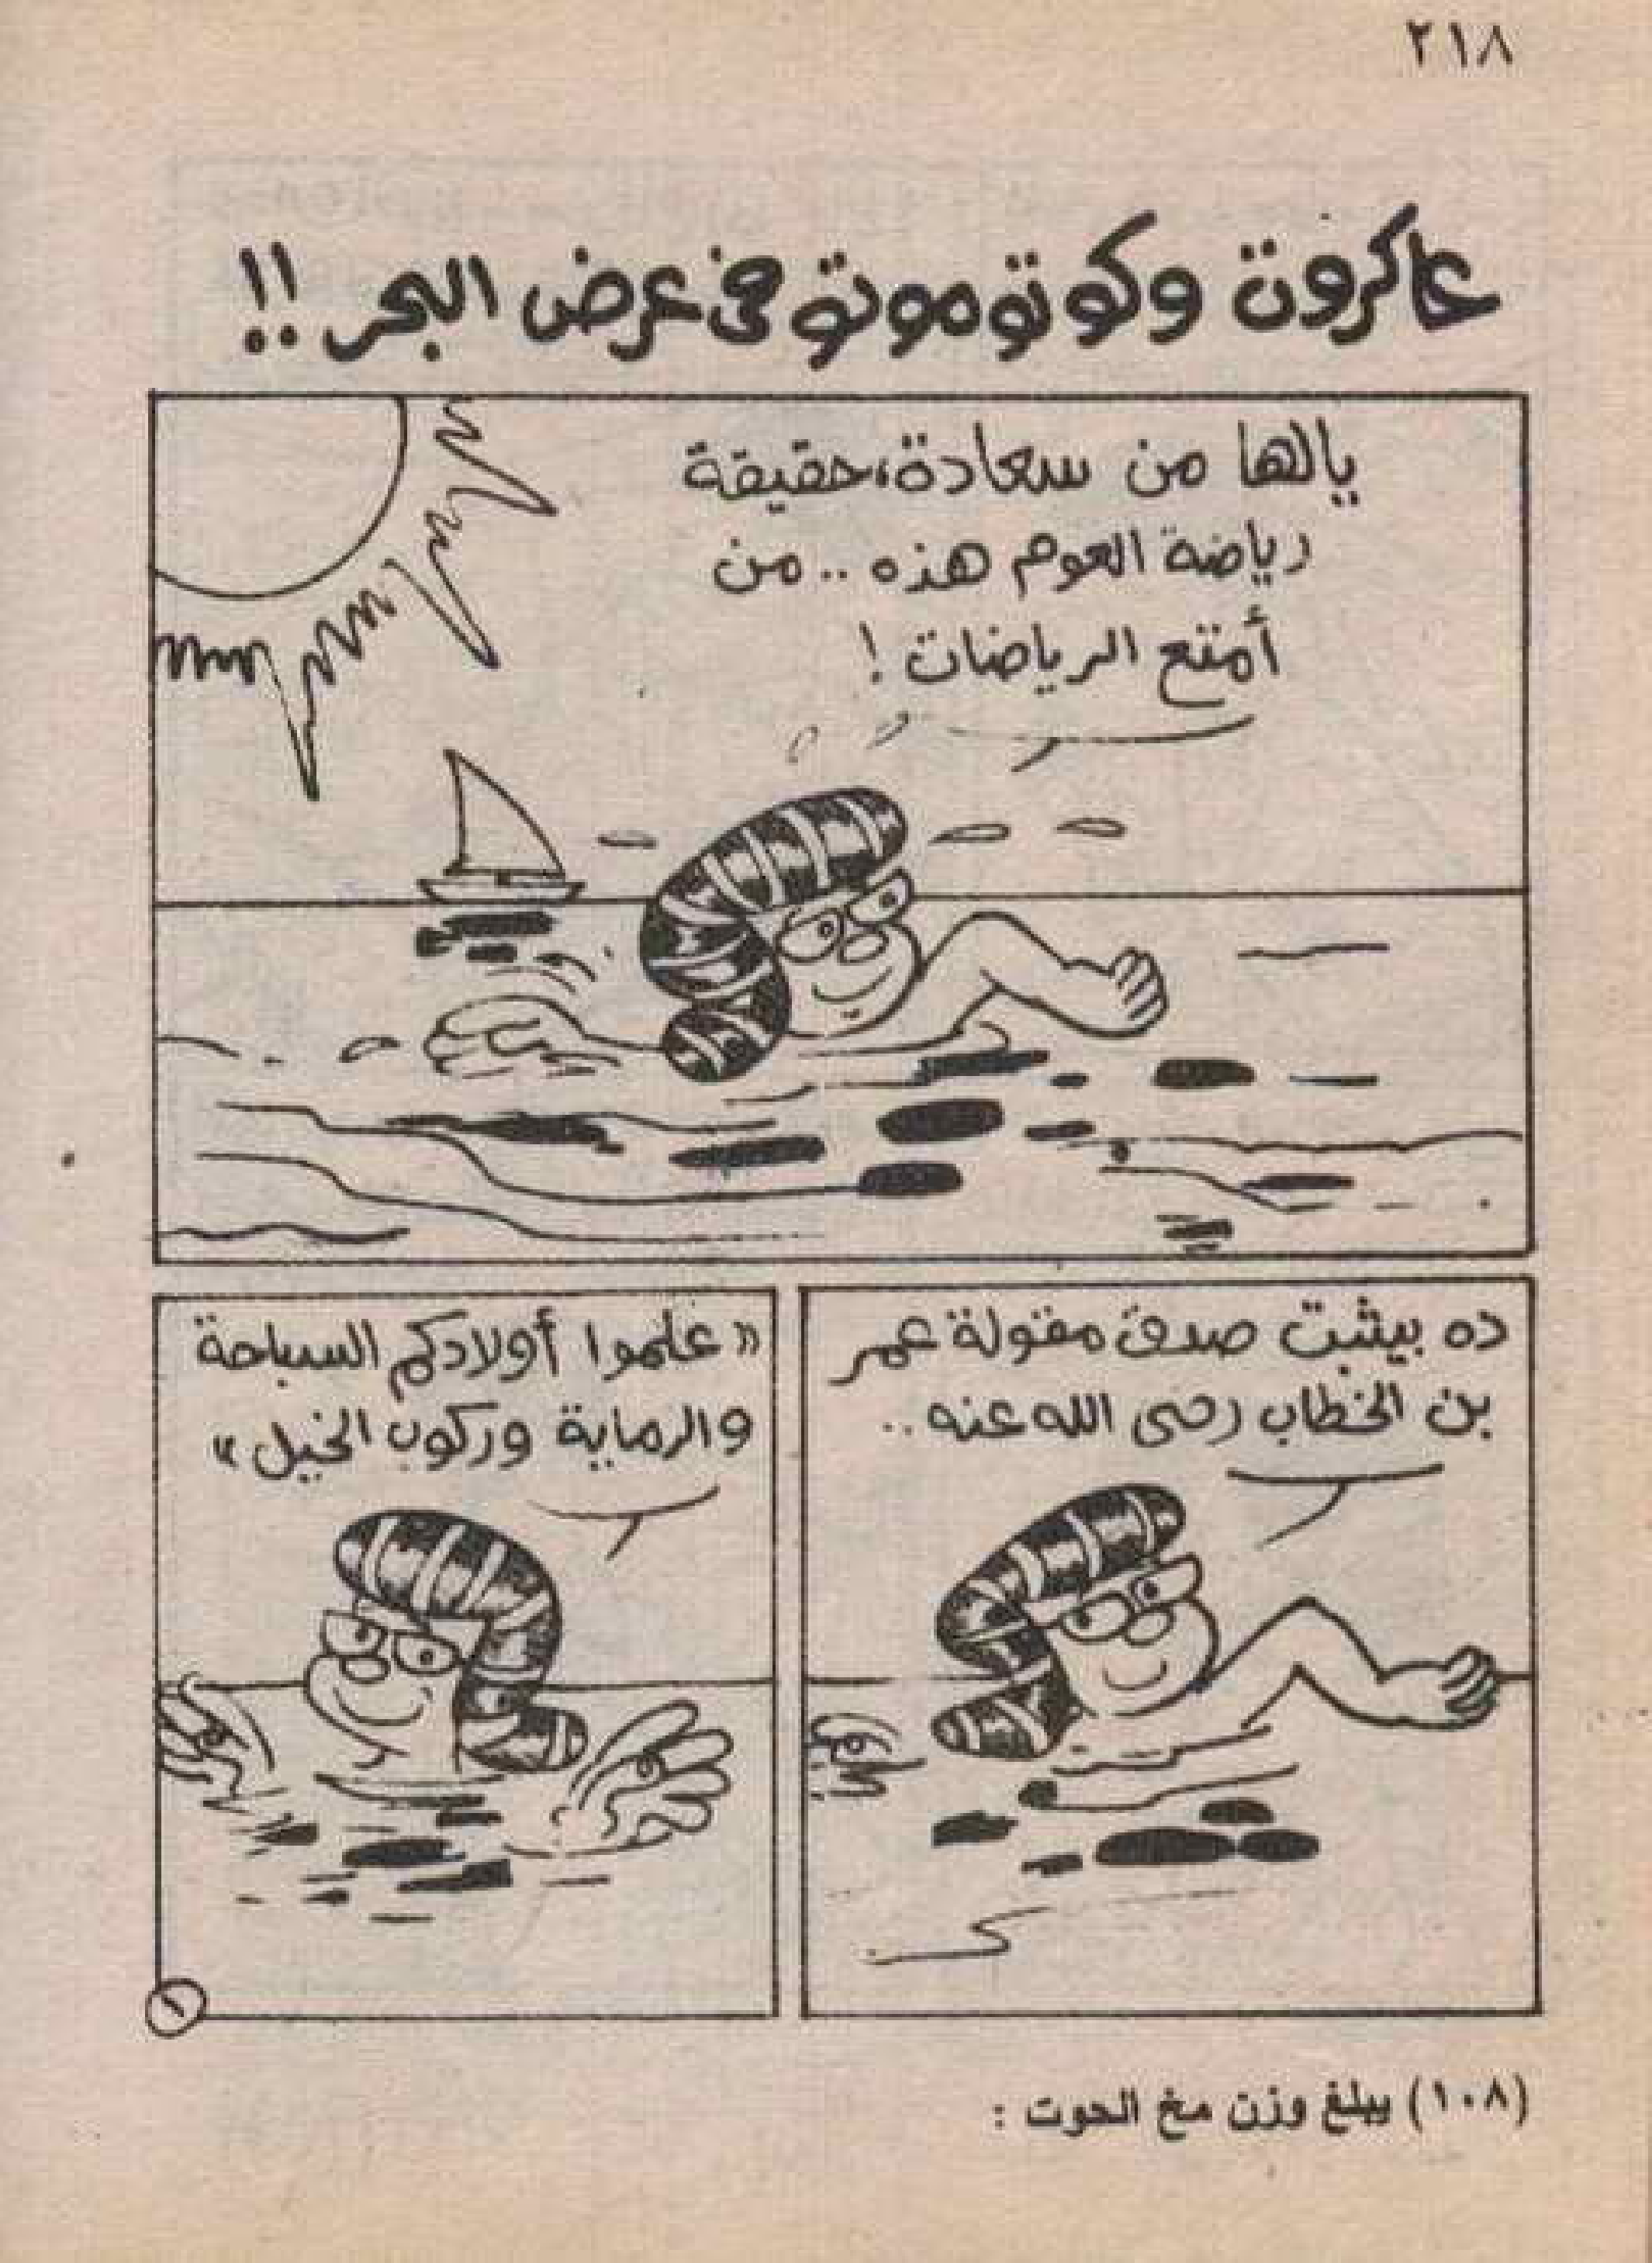 ٢١٨
عاكروت وكوتوموتو فى عرض البحر !!
يالها من سعادة، حقيقة
رياضة العوم هذه .. من
أمتع الرياضات !
ده بيثبت صدق مقولة عمر
بن الخطاب رضى الله عنه ..
« علموا أولادكم السباحة
والرماية وركوب الخيل »
١
(١٠٨) يبلغ وزن مخ الحوت :